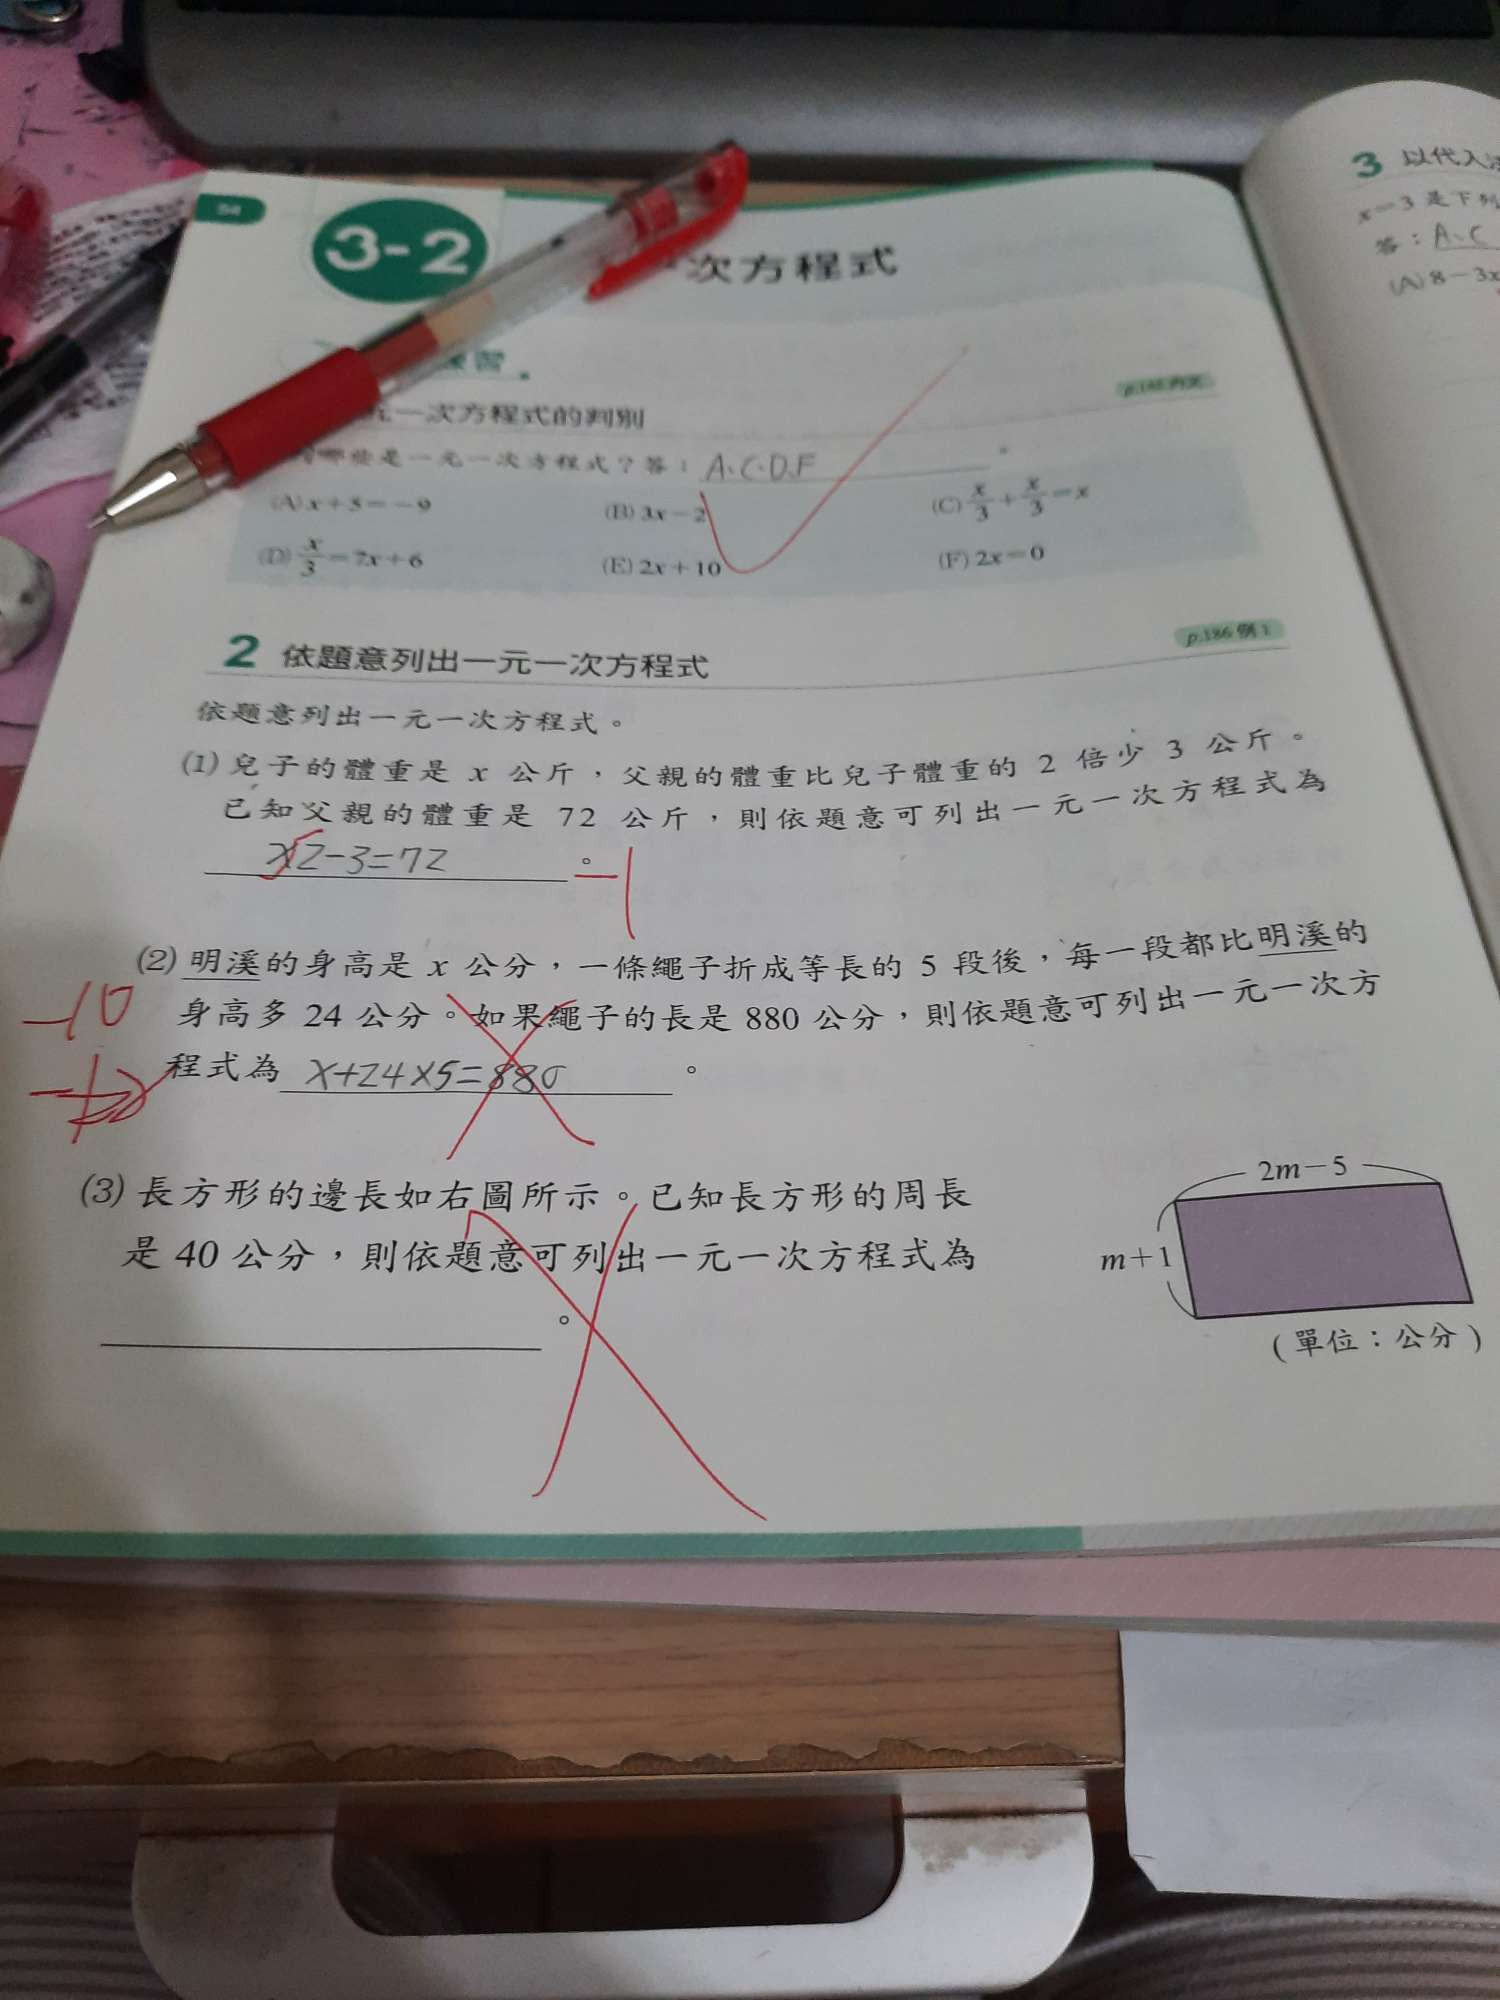 54
3-2
次方程式
練習
p.185內文
元一次方程式的判別
哪些是一元一次方程式？答：A、C、D、F。
(A) x+5=-9
(B) 3x-2
(C) x/3+x/3=x
(D) x/3=7x+6
(E) 2x+10
(F) 2x=0
2 依題意列出一元一次方程式
p.186 例 1
依題意列出一元一次方程式。
(1) 兒子的體重是 x 公斤，父親的體重比兒子體重的 2 倍少 3 公斤。
已知父親的體重是 72 公斤，則依題意可列出一元一次方程式為
x2-3=72。
-1
(2) 明溪的身高是 x 公分，一條繩子折成等長的 5 段後，每一段都比明溪的
-10
身高多 24 公分。如果繩子的長是 880 公分，則依題意可列出一元一次方
程式為 x+24×5=880。
(3) 長方形的邊長如右圖所示。已知長方形的周長
是 40 公分，則依題意可列出一元一次方程式為
。
2m-5
m+1
(單位：公分)
3 以代入
x=3 是下列
答：A、C
(A) 8-3x